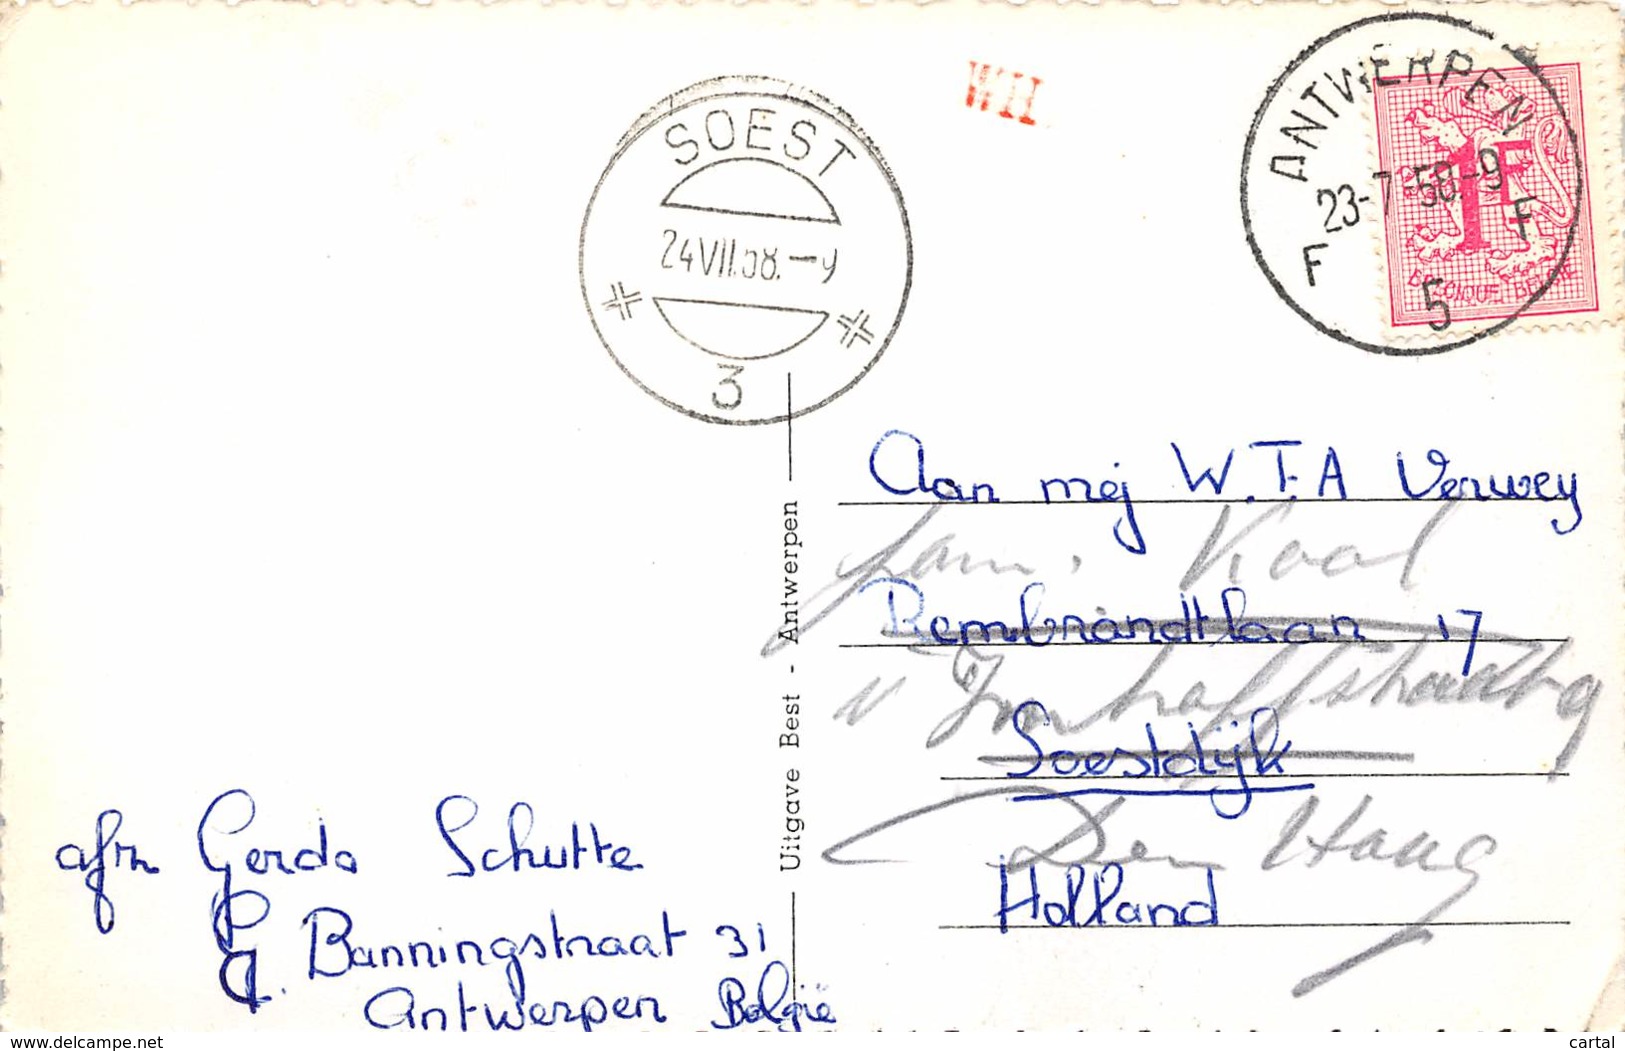 WH
SOEST
24 VII.58.-9
3
ANTWERPEN
23-7-58.-9
F F
5
1F
BELGIQUE-BELGIE
Aan mej W.T.A Verwey
fam. Kaal
Rembrandtlaan 17
v Imhoffstraat
Soestdijk
Den Haag
Holland
Uitgave Best - Antwerpen
afz Gerda Schutte
Banningstraat 31
Antwerpen België
www.delcampe.net
cartal